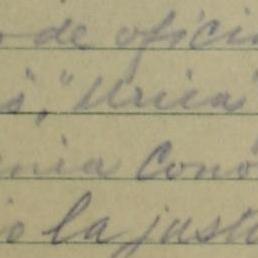 de ofici
", "Urica"
nia Cono
io la just